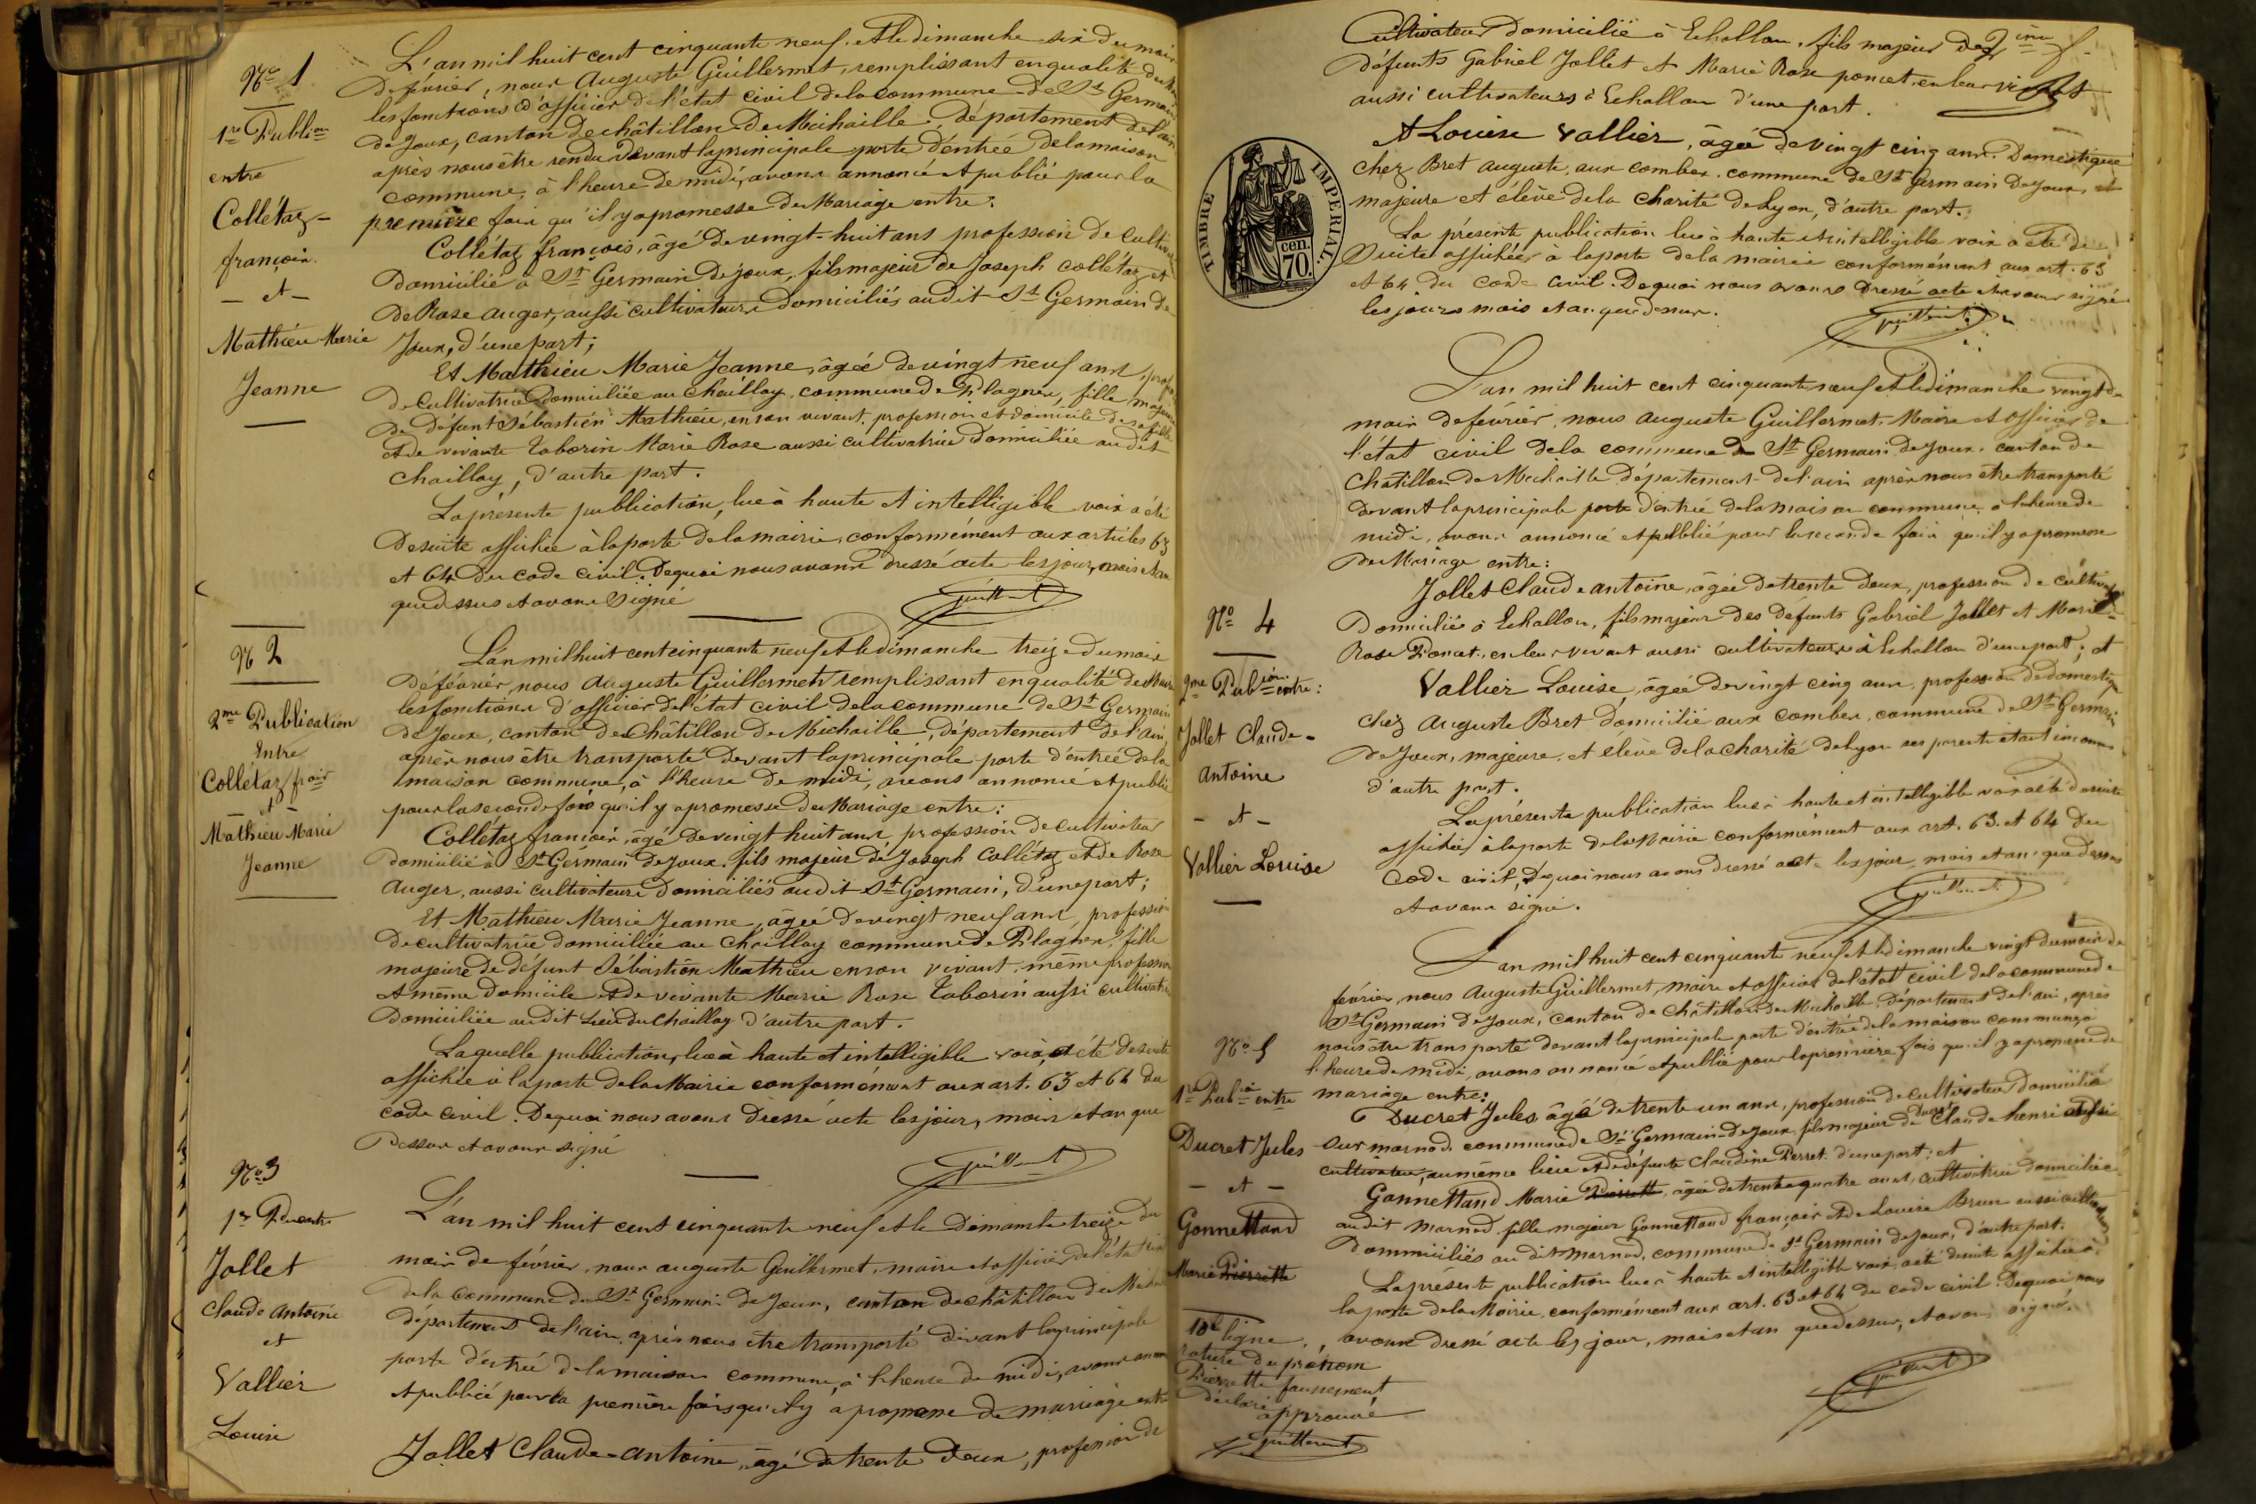 N° 1
1re Publion
entre
Collétaz
françois
et
Mathieu Marie
Jeanne
L'an mil huit cent cinquante neuf, et le dimanche six du mois
de février, nous Auguste Guillermet, remplissant en qualité de Maire
les fonctions d'officier de l'état civil de la commune de St Germain
de Joux, canton de châtillon de Michaille, département de l'ain
après nous être rendu devant la principale porte d'entrée de la maison
commune, à l'heure de midi, avons annoncé et publié pour la
première fois qu'il y a promesse de Mariage entre:
Collétaz françois, âgé de vingt-huit ans profession de cultivateur
domicilié à St Germain de joux, fils majeur de Joseph collétaz et
de Rose auger, aussi cultivateurs domiciliés audit St Germain de
Joux, d'une part;
Et Mathieu Marie Jeanne, âgée de vingt neuf ans, profession
de cultivatrice domiciliée au Chaillay, commune de Plagnes, fille majeure
de défunt Sébastien Mathieu, en son vivant profession et domicile de sa fille
et de vivante Taborin Marie Rose aussi cultivatrice domiciliée au dit
chaillay, d'autre part.
La présente publication, lue à haute et intelligible voix a été
de suite affichée à la porte de la mairie, conformément aux articles 63
et 64 du code civil. De quoi nous avons dressé acte les jour, mois et an
que dessus et avons signé
Guillermet
N° 2
2me Publication
Entre
Collétaz frois
et
Mathieu Marie
Jeanne
L'an mil huit cent cinquante neuf et le dimanche treize du mois
de février, nous Auguste Guillermet remplissant en qualité de Maire
les fonctions d'officier de l'état civil de la commune de St Germain
de Joux, canton de Châtillon de Michaille, département de l'ain,
après nous être transporté devant la principale porte d'entrée de la
maison commune, à l'heure de midi, avons annoncé et publié
pour la seconde fois qu'il y a promesse de Mariage entre:
Collétaz françois, âgé de vingt huit ans, profession de cultivateur
domicilié à St Germain de Joux, fils majeur de Joseph Collétaz et de Rose
Auger, aussi cultivateurs domiciliés audit St Germain, d'une part;
Et Mathieu Marie Jeanne, âgée de vingt neuf ans, profession
de cultivatrice domiciliée au Chaillay commune de Plagnes, fille
majeure de défunt Sébastien Mathieu en son vivant, même profession
et même domicile et de vivante Marie Rose Taborin aussi cultivatrice
domiciliée au dit Lieu du Chaillay d'autre part.
Laquelle publication, lue à haute et intelligible voix, a été de suite
affichée à la porte de la Mairie conformément aux art. 63 et 64 du
code civil. De quoi nous avons dressé acte les jour, mois et an que
dessus et avons signé
Guillermet
N° 3
1re P entre
Jollet
Claude Antoine
et
Vallier
Louise
L'an mil huit cent cinquante neuf et le dimanche treize du
mois de février, nous auguste Guillermet, maire et officier de l'état civil
de la commune de St Germain de Joux, canton de châtillon de Michaille
département de l'ain, après nous être transporté devant la principale
porte d'entrée de la maison commune, à l'heure de midi, avons annoncé
et publié pour la première fois qu'il y a promesse de mariage entre
Jollet Claude-antoine, âgé de trente deux, profession de
Cultivateur domicilié à Echallon, fils majeur des
défunts Gabriel Jollet et Marie Rose poncet, en leur vivant
aussi cultivateurs à Echallon d'une part.
Et Louise Vallier, âgée de vingt cinq ans. Domestique
chez Bret auguste, aux combes, commune de St Germain de Joux, et
majeure et élève de la charité de Lyon, d'autre part.
La présente publication lue à haute et intelligible voix a été de
suite affichée à la porte de la mairie conformément aux art. 63
et 64 du code civil. De quoi nous avons dressé acte et avons signé
les jours mois et an que dessus.
Guillermet
TIMBRE IMPERIAL.
70 cen.
N° 4
2me Publion entre:
Jollet Claude-
Antoine
et
Vallier Louise
L'an mil huit cent cinquante neuf et le dimanche vingt du
mois de février, nous auguste Guillermet, Maire et officier de
l'état civil de la commune de St Germain de Joux, canton de
Châtillon de Michaille département de l'ain après nous être transporté
devant la principale porte d'entrée de la maison commune, à l'heure de
midi, avons annoncé et publié pour la seconde fois qu'il y a promesse
de Mariage entre:
Jollet Claude antoine, âgé de trente deux, profession de cultivateur
domicilié à Echallon, fils majeur des défunts Gabriel Jollet et Marie
Rose Poncet, en leur vivant aussi cultivateurs à Echallon d'une part; et
Vallier Louise, âgée de vingt cinq ans, profession de domestique
chez Auguste Bret domicilié aux combes, commune de St Germain
de Joux, majeure, et élève de la charité de Lyon ses parents étant inconnus
d'autre part.
La présente publication lue à haute et intelligible voix a été de suite
affichée à la porte de la Mairie conformément aux art. 63 et 64 du
code civil, De quoi nous avons dressé acte les jour, mois et an que dessus
et avons signé.
Guillermet
N° 5
1re Publion entre
Ducret Jules
et
Gonnettand
Marie Pierrette
L'an mil huit cent cinquante neuf et le dimanche vingt du mois de
février, nous Auguste Guillermet, maire et officier de l'état civil de la commune de
St Germain de Joux, canton de Châtillon de Michaille, département de l'ain, après
nous être transporté devant la principale porte d'entrée de la maison commune à
l'heure de midi, avons annoncé et publié pour la première fois qu'il y a promesse de
mariage entre:
Ducret Jules âgé de trente un ans, profession de cultivateur domicilié
sur marnod commune de St Germain de Joux, fils majeur de Ducret Claude henri aussi
cultivateur, au même lieu et de défunte Claudine Perret d'une part; et
Gonnettand Marie Pierrette, âgée de trente quatre ans, cultivatrice domiciliée
au dit marnod fille majeure Gonnettand françois et de Louise Brun aussi cultivateurs
domiciliés au dit marnod, commune de St Germain de Joux, d'autre part.
La présente publication lue à haute et intelligible voix, a été de suite affichée à
la porte de la Mairie, conformément aux art. 63 et 64 du code civil. De quoi nous
avons dressé acte les jour, mois et an que dessus, et avons signé.
Guillermet
10e ligne
rature du prénom
Pierrette faussement
déclaré
approuvé
Guillermet